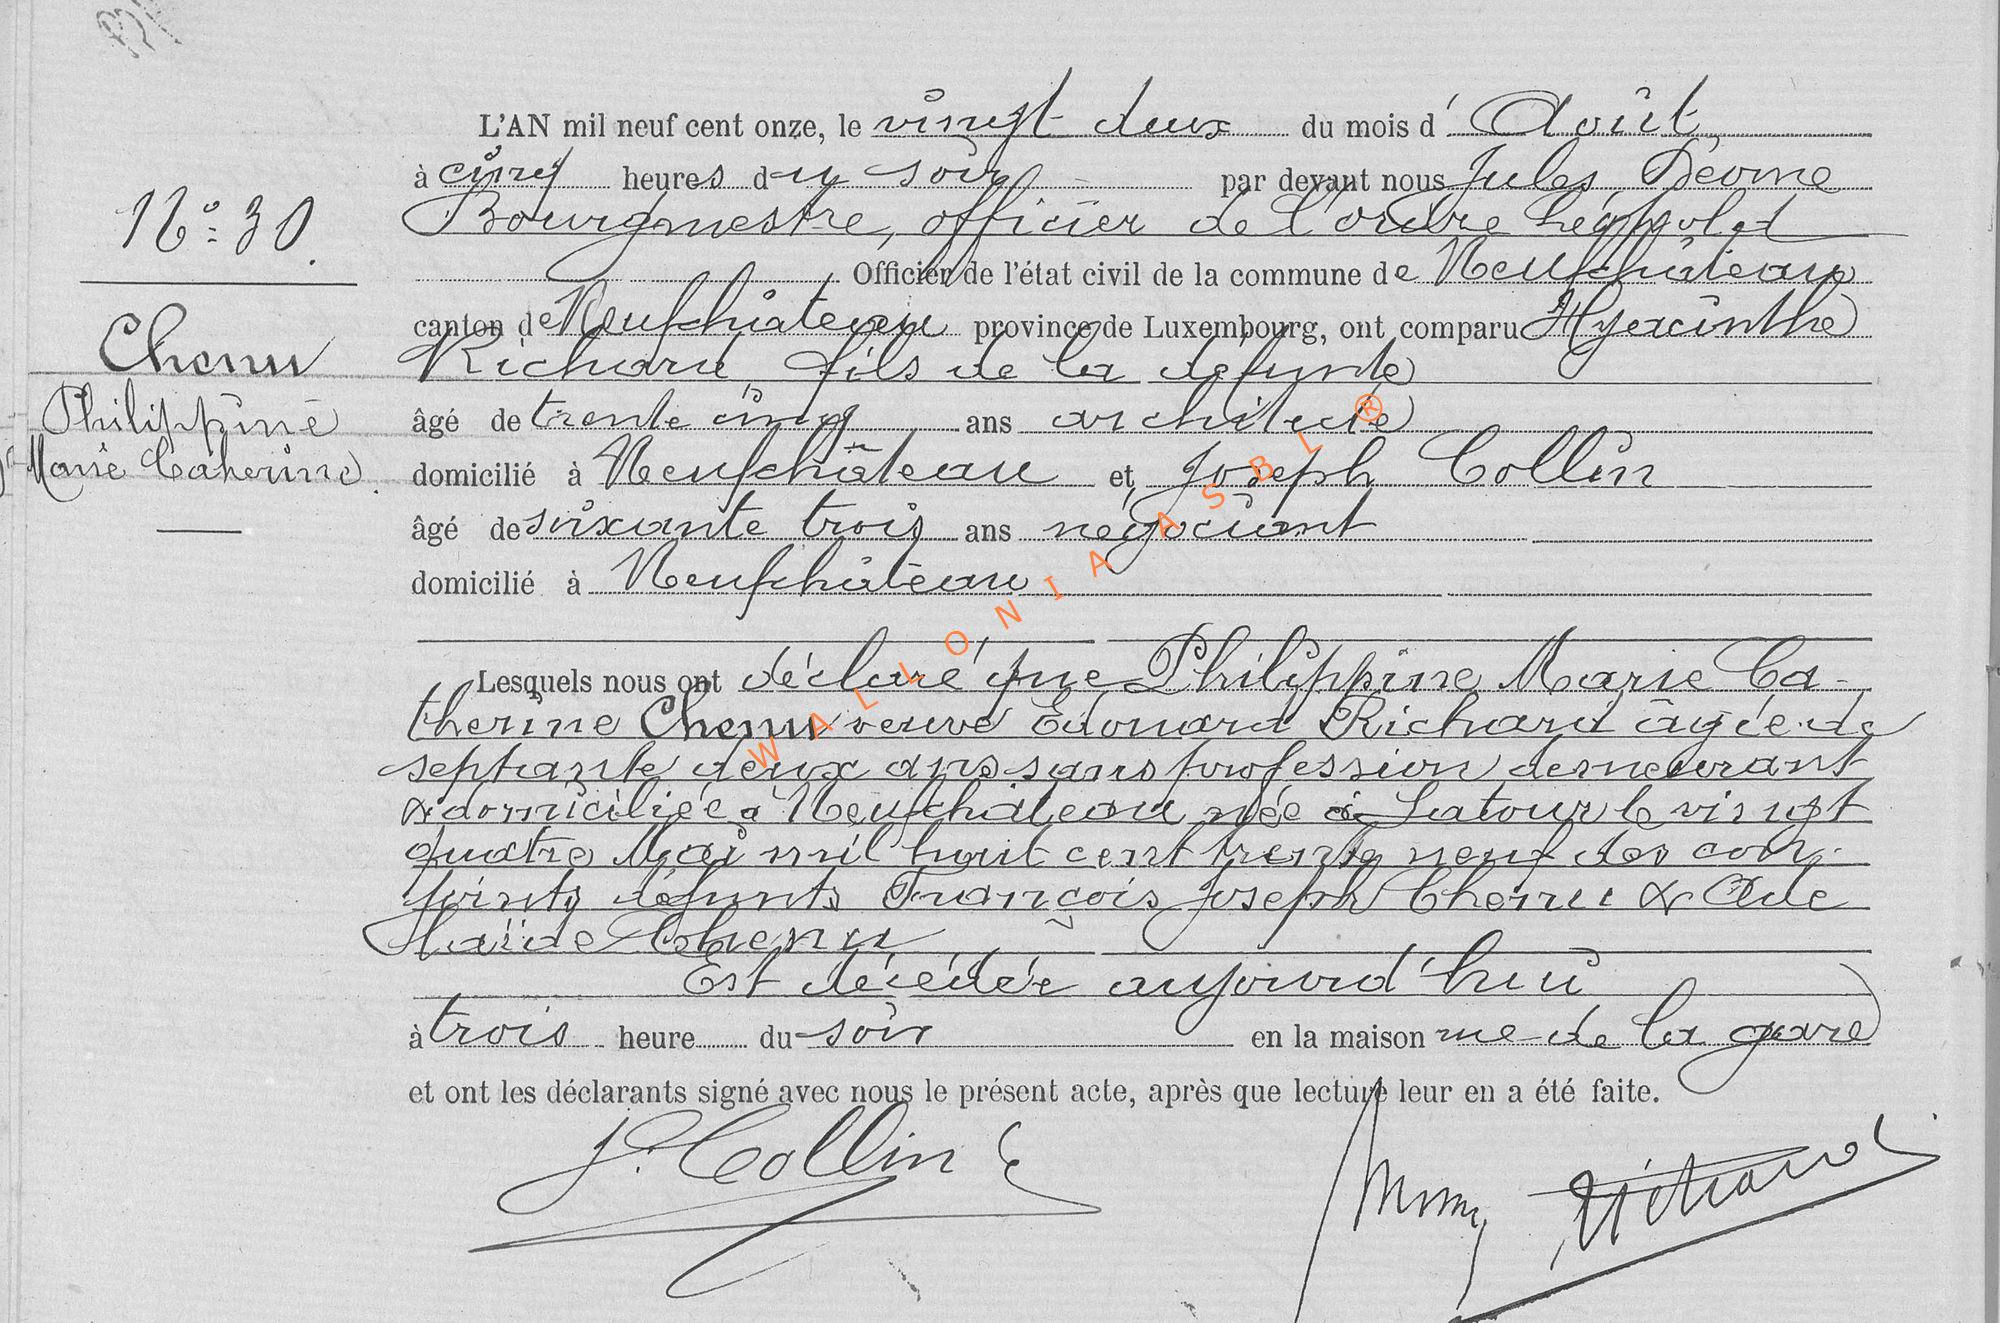 L'AN mil neuf cent onze, le vingt deux du mois d' Août
à cinq heures du soir par devant nous Jules
Bourgmestre, officier de l'ordre Léopold
Officier de l'état civil de la commune de Neufchâteau
canton de Neufchâteau province de Luxembourg, ont comparu Hyacinthe
Richard, fils de la défunte
âgé de trente cinq ans architecte
domicilié à Neufchâteau et Joseph Collin
âgé de soixante trois ans négociant
domicilié à Neufchâteau
Lesquels nous ont déclaré que Philippine Marie Ca-
therine Chenu veuve Edouard Richard âgée de
septante deux ans sans profession demeurant
& domiciliée à Neufchâteau née à Latour le vingt
quatre Mai mil huit cent trente neuf des con-
joints défunts François Joseph Chenu & Adé
laïde Chenu
Est décédée aujourd'hui
à trois heure du soir en la maison rue de la gare
et ont les déclarants signé avec nous le présent acte, après que lecture leur en a été faite.
J. Collin
Richard
N° 30.
Chenu
Philippine
Marie Catherine.
WALLONIA ASBL ®